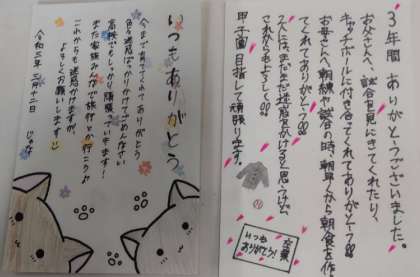 3年間ありがとうございました。
お父さんへ、試合を見にきてくれたり、
キャッチボールに付き合ってくれてありがとう!!
お母さんへ、朝練や試合の時、朝早くから朝食を作っ
てくれてありがとう!!
2人には、まだまだ迷惑かけると思うけど、
これからもよろしく!!
甲子園目指して頑張ります。
いつも
ありがとう!
いつもありがとう
今まで育ててくれてありがとう
高校でもしっかり頑張っていきます!
また家族みんなで旅行とか行こう♪
これからも迷惑かけますが、
よろしくお願いします
令和三年 三月十二日